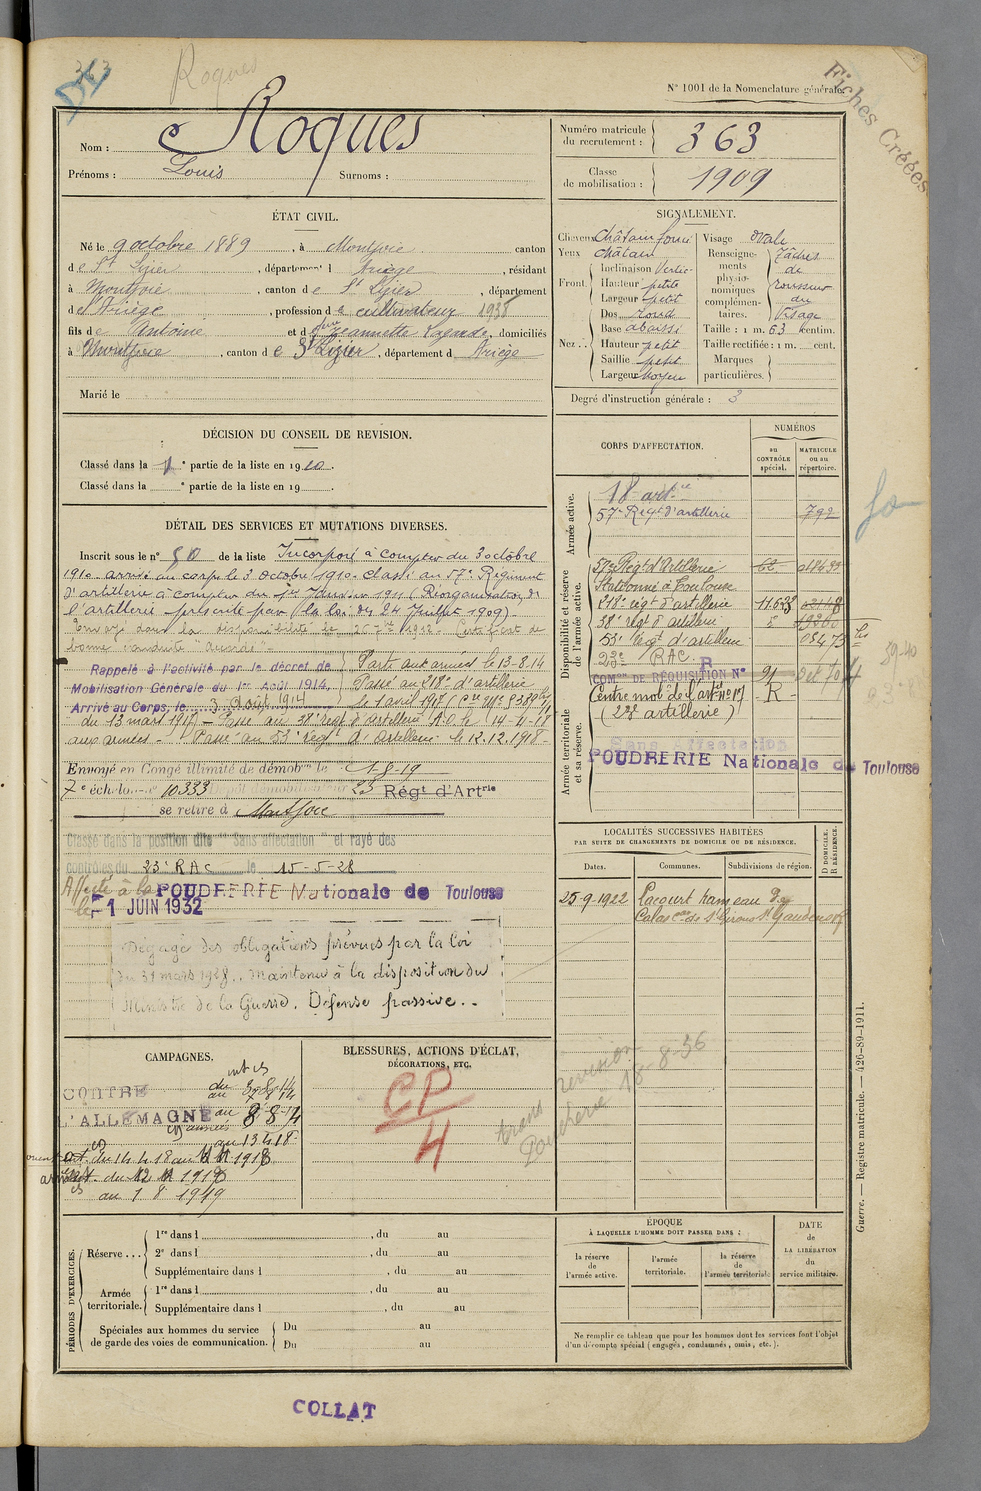 Roques
N° 1001 de la Nomenclature générale.
Fiches Créées
Nom : Roques
Prénoms : Louis Surnoms :
Numéro matricule du recrutement : 363
Classe de mobilisation : 1909
ÉTAT CIVIL.
Né le 9 octobre 1889, à Montjoie canton
de St Lizier, département d Ariège, résidant
à Montjoie, canton de St Lizier, département
de l'Ariège, profession de cultivateur 1938
fils de Antoine et de feu Jeannette, domiciliés
à Montjoie, canton de St Lizier, département d Ariège
Marié le
SIGNALEMENT.
Cheveux Châtain foncé
Yeux châtain
Front. Inclinaison Vertic
Hauteur petite
Largeur petit
Nez. Dos rond
Base abaissé
Hauteur petit
Saillie petit
Largeur Moyen
Visage Ovale
Renseignements physionomiques complémentaires. Tâches de rousseur du Visage
Taille : 1 m. 63 centim.
Taille rectifiée : 1 m. cent.
Marques particulières.
Degré d'instruction générale : 3
DÉCISION DU CONSEIL DE REVISION.
Classé dans la 1e partie de la liste en 1910.
Classé dans la e partie de la liste en 19
DÉTAIL DES SERVICES ET MUTATIONS DIVERSES.
Inscrit sous le n° 80 de la liste Incorporé à compter du 3 octobre
1910 arrivé au corps le 3 octobre 1910. Classé au 57e Régiment
d'artillerie à compter du 1er Janvier 1911 (Réorganisation de
l'artillerie prescrite par la loi du 24 Juillet 1909)
Envoyé dans la disponibilité le 25 7bre 1912. Certificat de
bonne conduite "Accordé".
Rappelé à l'activité par le décret de
Mobilisation Générale du 1er Août 1914.
Arrivé au Corps, le 3 Août 1914
Parti aux armées le 13-8-14
Passé au 218e d'artillerie
le 1 avril 1917
du 13 mars 1917) - Passé au 38e régt d'artillerie A.O. le 14-4-18
aux armées - Passé au 53e Régt d'artillerie le 12.12.1918
Envoyé en Congé illimité de démobon le 1-8-19
7e échelon n° 10333 Dépôt démobilisateur 23 Régt d'Artrie
se retire à Montjoie
Classé dans la position dite "Sans affectation" et rayé des
contrôles du 23e RAC le 15-5-28
Affecté à la POUDRERIE Nationale de Toulouse
le 1 JUIN 1932
Dégagé des obligations prévues par la loi
du 31 mars 1928. Maintenu à la disposition du
Ministre de la Guerre. Défense passive.
CORPS D'AFFECTATION.
NUMÉROS
au CONTRÔLE spécial.
MATRICULE ou au répertoire.
Armée active.
18 artie
57e Régt d'artillerie 792
Disponibilité et réserve de l'armée active.
57e Régt d'Artillerie
Stationné à Toulouse
218e régt d'artillerie
38e régt d'artillerie
53e régt d'artillerie
23e RAC
COMon DE RÉQUISITION N°
Centre mobon de l'artie n° 17 R
(23e artillerie)
Armée territoriale et sa réserve.
Sans affectation
POUDRERIE Nationale de Toulouse
LOCALITÉS SUCCESSIVES HABITÉES
PAR SUITE DE CHANGEMENTS DE DOMICILE OU DE RÉSIDENCE.
Dates.
Communes.
Subdivisions de région.
D DOMICILE. R RÉSIDENCE.
25-9-1922 Lacourt hameau
St Gaudens
CAMPAGNES.
CONTRE
L'ALLEMAGNE
au 1 8 1919
BLESSURES, ACTIONS D'ÉCLAT,
DÉCORATIONS, ETC.
CP
4
revision
18-8-36
PÉRIODES D'EXERCICES.
Réserve ... 1re dans l , du au
2e dans l , du au
Supplémentaire dans l , du au
Armée territoriale. 1re dans l , du au
Supplémentaire dans l , du au
Spéciales aux hommes du service de garde des voies de communication. Du au
Du au
ÉPOQUE
À LAQUELLE L'HOMME DOIT PASSER DANS :
la réserve de l'armée active.
l'armée territoriale.
la réserve de l'armée territoriale
DATE de LA LIBÉRATION du service militaire.
Ne remplir ce tableau que pour les hommes dont les services font l'objet
d'un décompte spécial (engagés, condamnés, omis, etc.).
Guerre. — Registre matricule. — 426-89-1911.
COLLAT